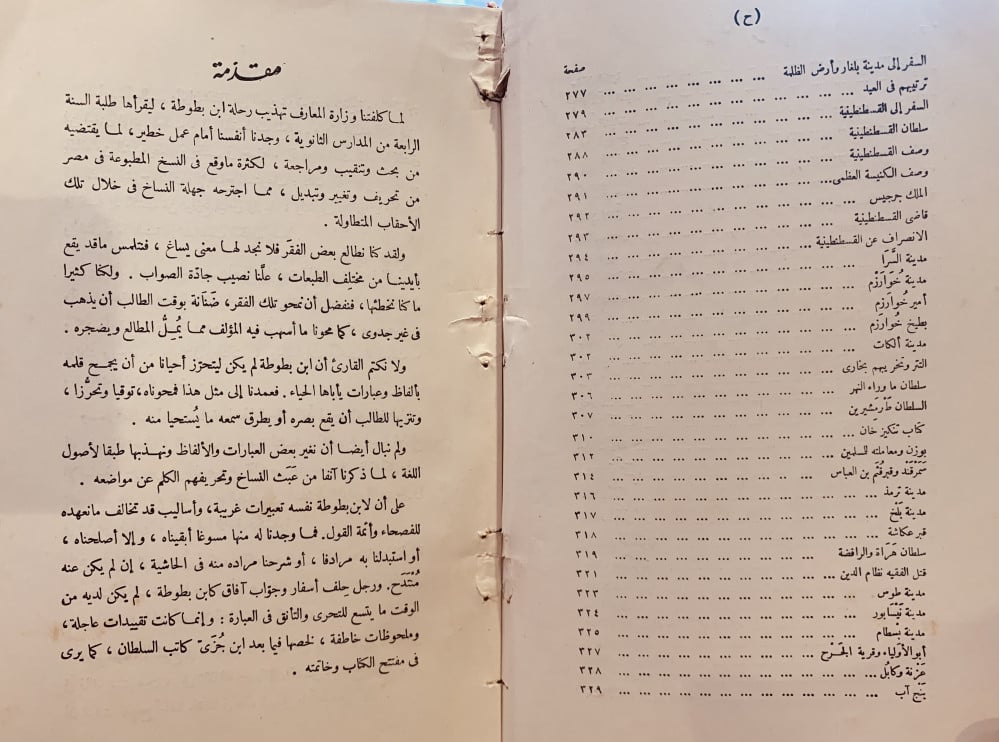 (ح)
صفحة
السفر إلى مدينة بلغار وأرض الظلمة ... ... ... ... ... ... ٢٧٧
ترتيبهم فى العيد ... ... ... ... ... ... ... ... ... ٢٧٩
السفر إلى القسطنطينية ... ... ... ... ... ... ... ... ٢٨٣
سلطان القسطنطينية ... ... ... ... ... ... ... ... ٢٨٨
وصف القسطنطينية ... ... ... ... ... ... ... ... ٢٩٠
وصف الكنيسة العظمى ... ... ... ... ... ... ... ... ٢٩١
الملك جرجيس ... ... ... ... ... ... ... ... ... ٢٩٢
قاضى القسطنطينية ... ... ... ... ... ... ... ... ٢٩٣
الانصراف عن القسطنطينية ... ... ... ... ... ... ... ٢٩٤
مدينة السَّرَا ... ... ... ... ... ... ... ... ... ٢٩٥
مدينة خُوَارَزْم ... ... ... ... ... ... ... ... ... ٢٩٧
أمير خُوارَزم ... ... ... ... ... ... ... ... ... ٢٩٩
بطيخ خُوارَزم ... ... ... ... ... ... ... ... ... ٣٠٢
مدينة ألكات ... ... ... ... ... ... ... ... ... ٣٠٢
التتر وتخريبهم بخارى ... ... ... ... ... ... ... ... ٣٠٣
سلطان ما وراء النهر ... ... ... ... ... ... ... ... ٣٠٦
السلطان طَرْمَشِيرين ... ... ... ... ... ... ... ... ٣٠٧
كتاب تنكيز خان ... ... ... ... ... ... ... ... ... ٣١٠
بوزن ومعاملته للسلمين ... ... ... ... ... ... ... ... ٣١٢
سَمَرْقَند وقبر قُثَم بن العباس ... ... ... ... ... ... ... ٣١٤
مدينة ترمذ ... ... ... ... ... ... ... ... ... ... ٣١٦
مدينة بَلْخ ... ... ... ... ... ... ... ... ... ... ٣١٧
قبر عكاشة ... ... ... ... ... ... ... ... ... ... ٣١٨
سلطان هَرَاة والرافضة ... ... ... ... ... ... ... ... ٣١٩
قتل الفقيه نظام الدين ... ... ... ... ... ... ... ... ٣٢١
مدينة طوس ... ... ... ... ... ... ... ... ... ... ٣٢٣
مدينة نَيْسَابور ... ... ... ... ... ... ... ... ... ٣٢٤
مدينة بسطام ... ... ... ... ... ... ... ... ... ٣٢٥
أبو الأولياء وقرية الجَرْخ ... ... ... ... ... ... ... ٣٢٧
غَزْنة وكابُل ... ... ... ... ... ... ... ... ... ... ٣٢٨
بَنْج آب ... ... ... ... ... ... ... ... ... ... ٣٢٩
مقدّمة
لما كلفتنا وزارة المعارف تهذيب رحلة ابن بطوطة ، ليقرأها طلبة السنة
الرابعة من المدارس الثانوية ، وجدنا أنفسنا أمام عمل خطير، لما يقتضيه
من بحث وتنقيب ومراجعة ، لكثرة ماوقع فى النسخ المطبوعة فى مصر
من تحريف وتغيير وتبديل ، مما اجترحه جهلة النساخ فى خلال تلك
الأحقاب المتطاولة .
ولقد كنا نطالع بعض الفقَر فلا نجد لها معنى يساغ ، فنتلمس ماقد يقع
بأيدينا من مختلف الطبعات ، علَّنا نصيب جادّة الصواب . ولكنا كثيرا
ما كنا نخطئها، فنفضل أن نمحو تلك الفقر، ضنّانة بوقت الطالب أن يذهب
فى غير جدوى ، كما محونا ما أسهب فيه المؤلف مما يُمِلُّ المطالع ويضجره .
ولا نكتم القارئ أن ابن بطوطة لم يكن ليتحترز أحيانا من أن يجمح قلمه
بألفاظ وعبارات يأباها الحياء . فعمدنا إلى مثل هذا فمحوناه، توقيا وتحرُّزا ،
وتنزيها للطالب أن يقع بصره أو يطرق سمعه ما يُستحيا منه .
ولم نبال أيضا أن نغير بعض العبارات والألفاظ ونهذبها طبقا لأصول
اللغة ، لما ذكرنا آنفا من عَبَث النساخ وتحريفهم الكلم عن مواضعه .
على أن لابن بطوطة نفسه تعبيرات غريبة، وأساليب قد تخالف مانعهده
للفصحاء وأئمة القول. فما وجدنا له منها مسوغا أبقيناه ، وإلا أصلحناه ،
أو استبدلنا به مرادفا ، أو شرحنا مراده منه فى الحاشية ، إن لم يكن عنه
مُنْتَدَح. ورجل حِلف أسفار وجوّاب آفاق كابن بطوطة ، لم يكن لديه من
الوقت ما يتسع للتحرى والتأنق فى العبارة : وإنما كانت تقييدات عاجلة،
وملحوظات خاطفة ، لخصها فيما بعد ابن جُزَىّ كاتب السلطان ، كما يرى
فى مفتتح الكتاب وخاتمته .